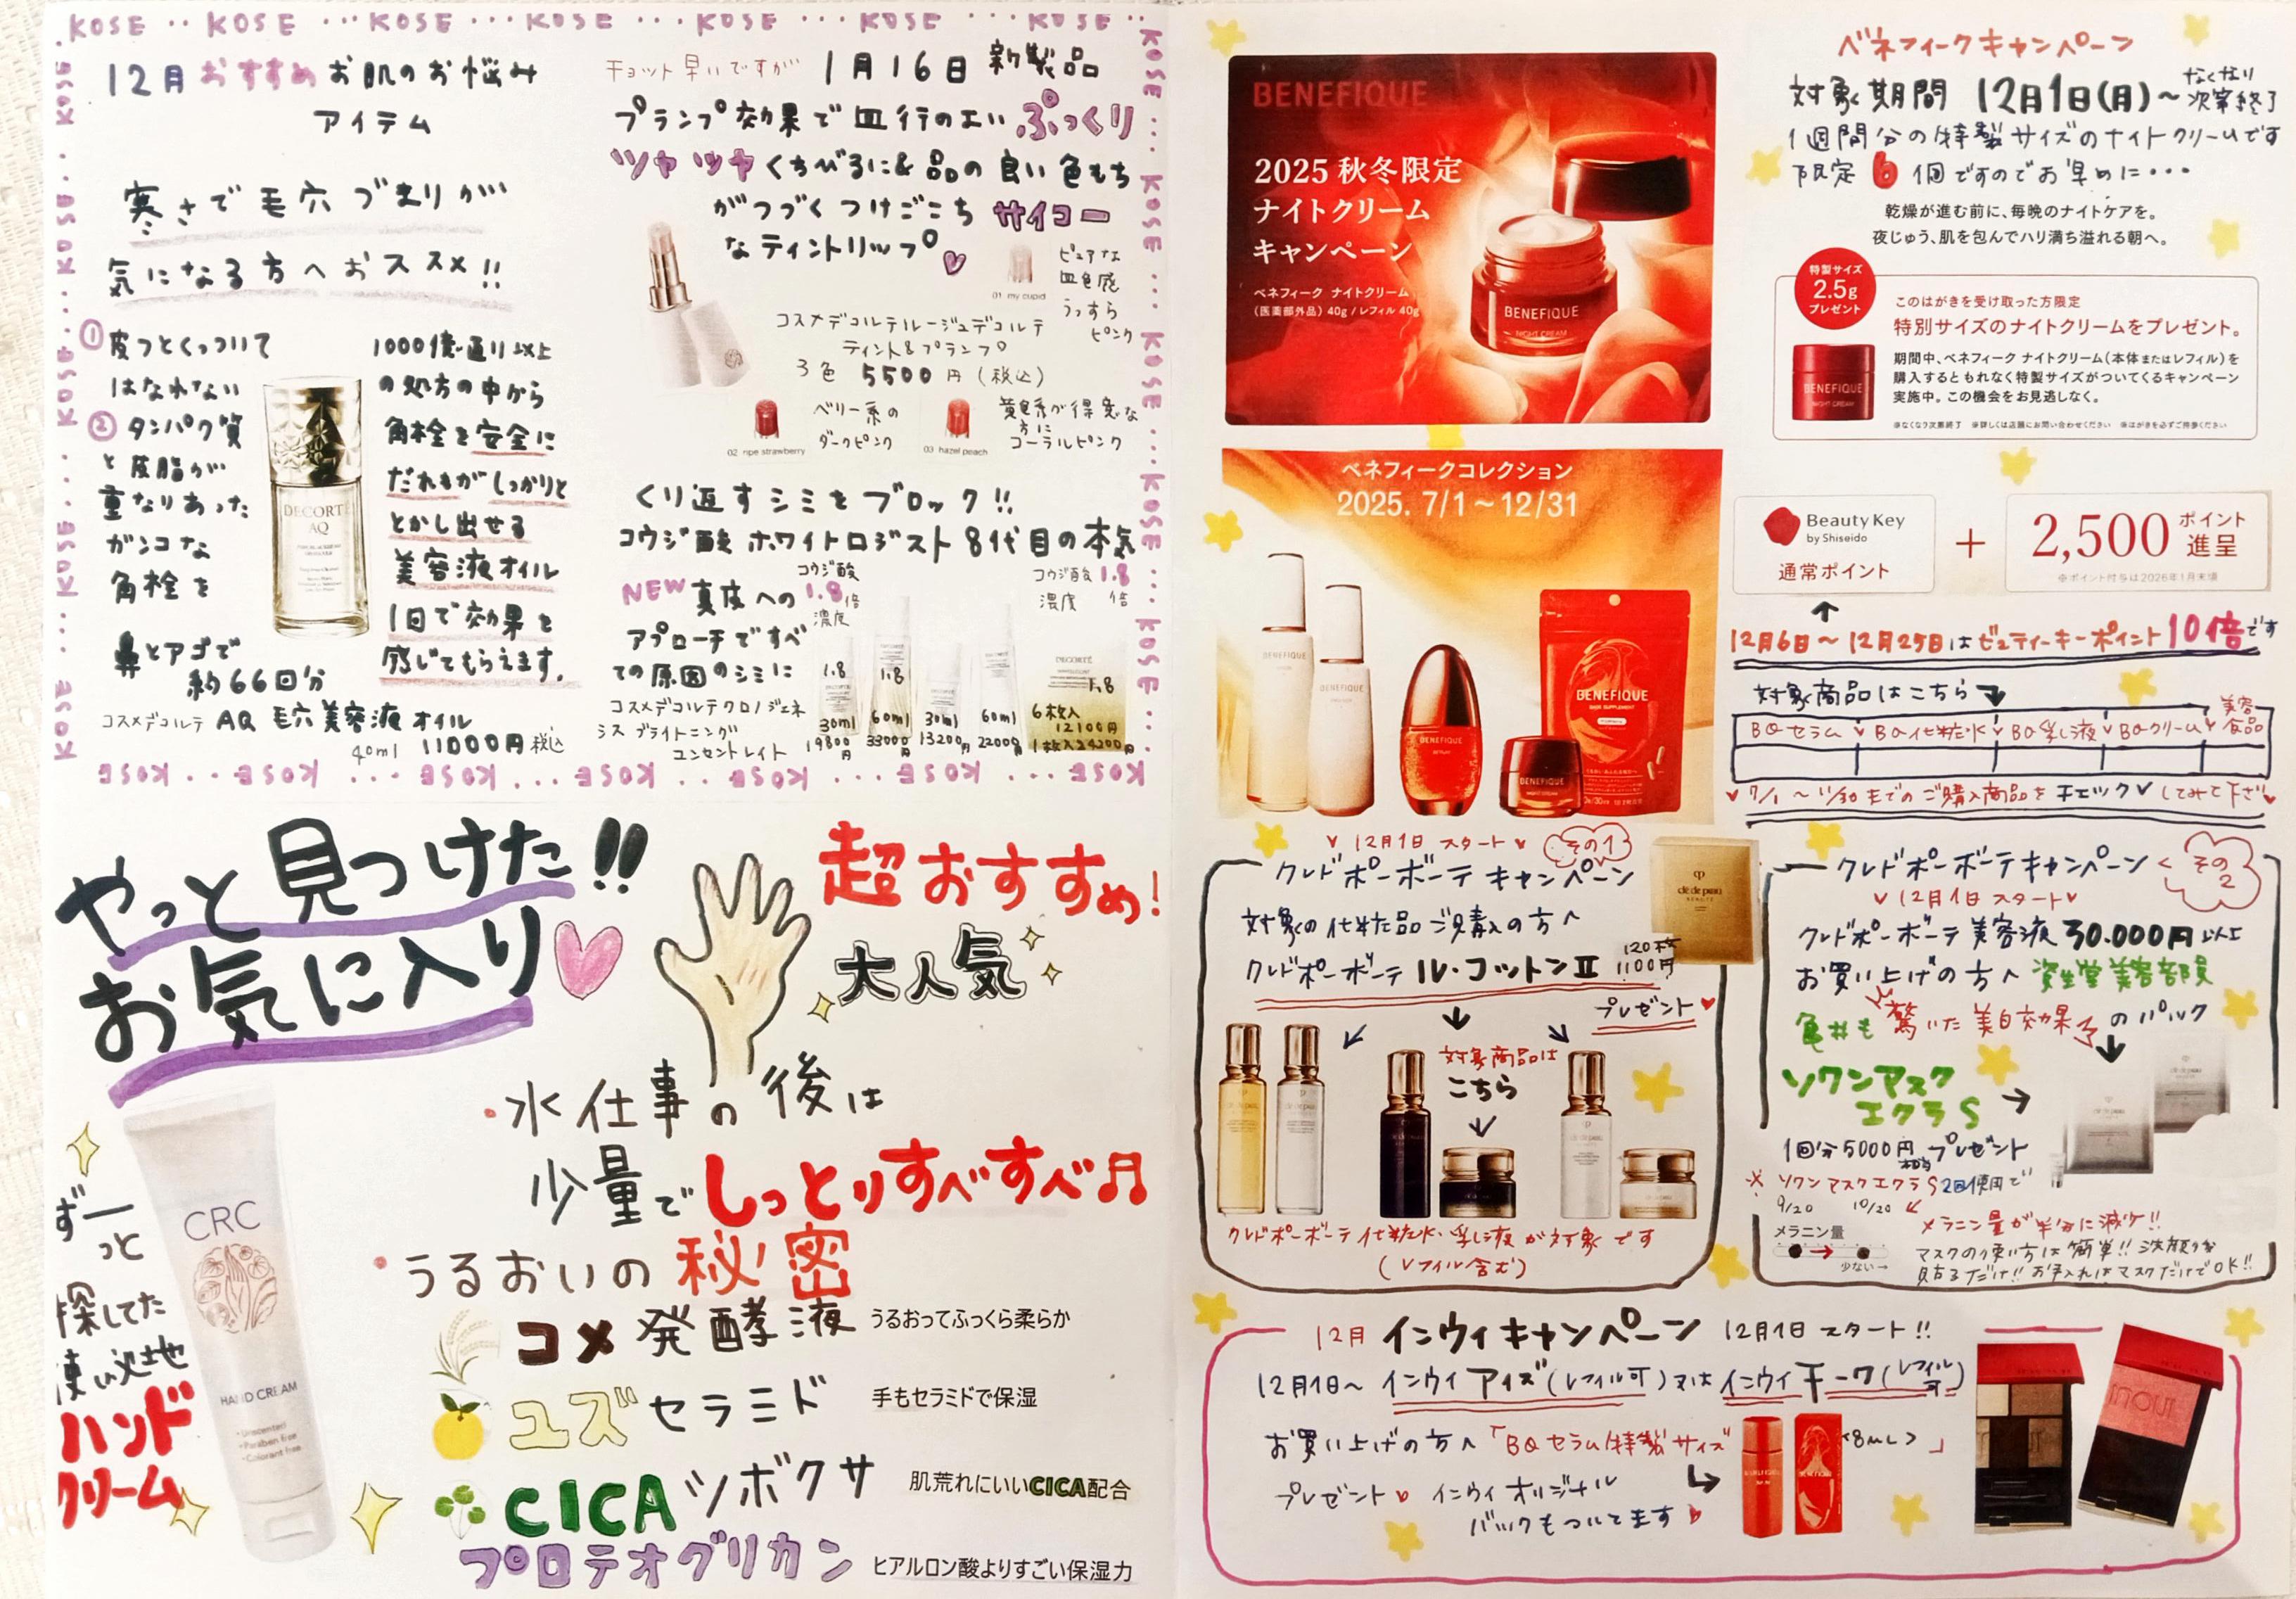 KOSE ・・ KOSE ・・・ KOSE ・・・ KOSE ・・・ KOSE ・・・ KOSE ・・・ KOSE
12月おすすめお肌のお悩み
アイテム
寒さで毛穴づまりが
気になる方へおススメ!!
① 皮ふとくっついて
はなれない
② タンパク質
と皮脂が
重なりあった
ガンコな
角栓を
鼻とアゴで
約66回分
DECORTÉ
AQ
1000億通り以上
の処方の中から
角栓を安全に
だれもがしっかりと
とかし出せる
美容液オイル
1回で効果を
感じてもらえます。
コスメデコルテ AQ 毛穴美容液オイル
40ml 11000円 税込
チョット早いですが 1月16日 新製品
プランプ効果で血行のよい ぷっくり
ツヤツヤくちびるに& 品の良い色もち
がつづくつけごこち サイコー
なティントリップ♡
01 my cupid
ピュアな
血色感
うっすら
ピンク
コスメデコルテルージュデコルテ
ティント&プランプ
3色 5500円(税込)
02 ripe strawberry
ベリー系の
ダークピンク
03 hazel peach
黄色系が得意な
方に
コーラルピンク
くり返すシミをブロック!!
コウジ酸 ホワイトロジスト 8代目の本気
NEW 真皮への
アプローチですべ
ての原因のシミに
コウジ酸
1.8倍
濃度
コウジ酸 1.8
濃度 倍
コスメデコルテクロノジェネ
シス ブライトニング
コンセントレイト
1.8
30ml
19800円
1.8
60ml
33000円
30ml
13200円
60ml
22000円
DECORTÉ
1.8
6枚入
12100円
1枚入24200円
KOSE ・・・ KOSE ・・・ KOSE ・・・ KOSE ・・・ KOSE ・・・ KOSE ・・・ KOSE
やっと見つけた!!
お気に入り
超おすすめ!
大人気
・水仕事の後は
少量でしっとりすべすべ♬
・うるおいの秘密
コメ発酵液 うるおってふっくら柔らか
ユズセラミド 手もセラミドで保湿
CICA ツボクサ 肌荒れにいいCICA配合
プロテオグリカン ヒアルロン酸よりすごい保湿力
ずーっと
探してた
使い心地
ハンド
クリーム
CRC
HAND CREAM
・Unscented
・Paraben free
・Colorant free
BENEFIQUE
2025 秋冬限定
ナイトクリーム
キャンペーン
ベネフィーク ナイトクリーム
(医薬部外品) 40g / レフィル 40g
BENEFIQUE
NIGHT CREAM
ベネフィークキャンペーン
対象期間 12月1日(月)〜なくなり次第終了
1週間分の特製サイズのナイトクリームです
限定 6 個ですのでお早めに・・・
乾燥が進む前に、毎晩のナイトケアを。
夜じゅう、肌を包んでハリ満ち溢れる朝へ。
特製サイズ
2.5g
プレゼント
このはがきを受け取った方限定
特別サイズのナイトクリームをプレゼント。
期間中、ベネフィーク ナイトクリーム(本体またはレフィル)を
購入するともれなく特製サイズがついてくるキャンペーン
実施中。この機会をお見逃しなく。
※なくなり次第終了 ※詳しくは店頭にお問い合わせください ※はがきを必ずご持参ください
BENEFIQUE
NIGHT CREAM
ベネフィークコレクション
2025. 7/1〜12/31
BENEFIQUE
BENEFIQUE
BENEFIQUE
BENEFIQUE
Beauty Key
by Shiseido
通常ポイント
+
2,500 ポイント進呈
※ポイント付与は2026年1月末頃
12月6日〜12月25日はビューティーキーポイント10倍です
対象商品はこちら
BQセラム BQ化粧水 BQ乳液 BQクリーム 美容食品
7/1〜11/30までのご購入商品をチェック✓してみて下さい
♥12月1日 スタート♥ その1
クレドポーボーテ キャンペーン
対象の化粧品ご購入の方へ
クレドポーボーテ ル・コットンⅡ 120枚 1100円
プレゼント♥
clé de peau
BEAUTÉ
対象商品は
こちら
クレドポーボーテ 化粧水・乳液が対象です
(レフィル含む)
クレドポーボーテキャンペーン その2
♥12月1日スタート♥
クレドポーボーテ 美容液 30.000円以上
お買い上げの方へ 資生堂美容部員
亀井も驚いた美白効果のパック
ソワンマスク
エクラS
1回分5000円相当プレゼント
※ソワンマスクエクラS2回使用で
9/20 10/20
メラニン量が半分に減少!!
メラニン量
少ない→
マスクの使い方は簡単!! 洗顔後
貼るだけ!! お手入れはマスクだけでOK!!
12月 インウイキャンペーン 12月1日 スタート!!
12月1日〜 インウイ アイズ(レフィル可)又は インウイ チーク(レフィル可)
お買い上げの方へ「BQセラム特製サイズ <8mL>」
プレゼント♥ インウイオリジナル
バックもついてます♥
inoui